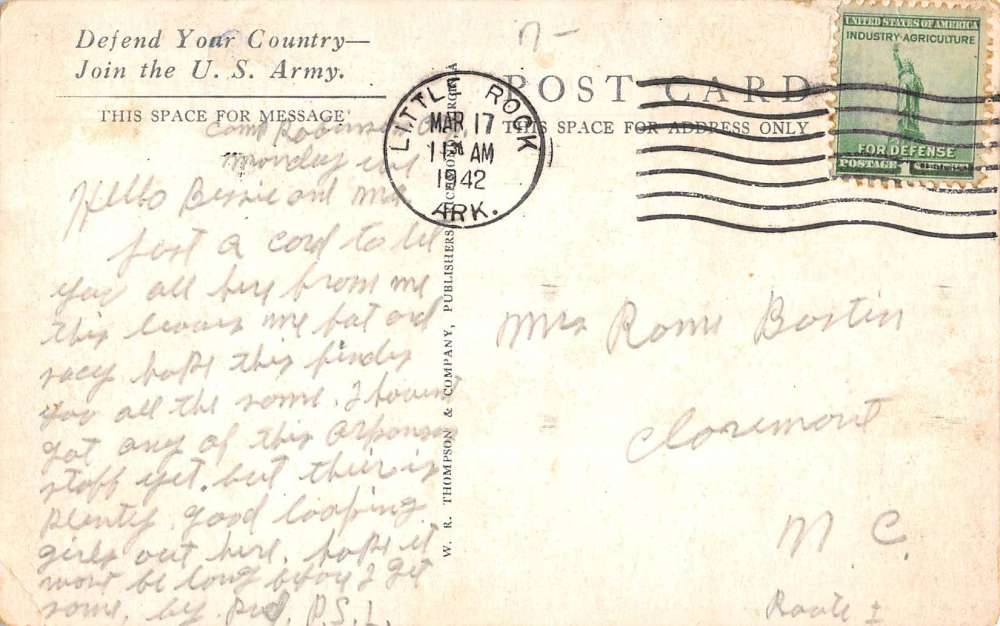 Defend Your Country—
Join the U. S. Army.
THIS SPACE FOR MESSAGE
Camp Robinson
Monday
Hello Bessie and
Just a card to let
you all hear from me
this leaves me fat and
sacy hope this finds
you all the same. I havent
got any of this
stuff yet. but their is
plenty good looking
girls out here. hope it
wont be long befor I get
some. by P.S.L.
W. R. THOMPSON & COMPANY, PUBLISHERS, RICHMOND, VIRGINIA
LITTLE ROCK
MAR 17
11 AM
1942
ARK.
POST CARD
THIS SPACE FOR ADDRESS ONLY
UNITED STATES OF AMERICA
INDUSTRY·AGRICULTURE
FOR DEFENSE
POSTAGE 1
Mrs Rome Bostin
Claremont
N C.
Route 1